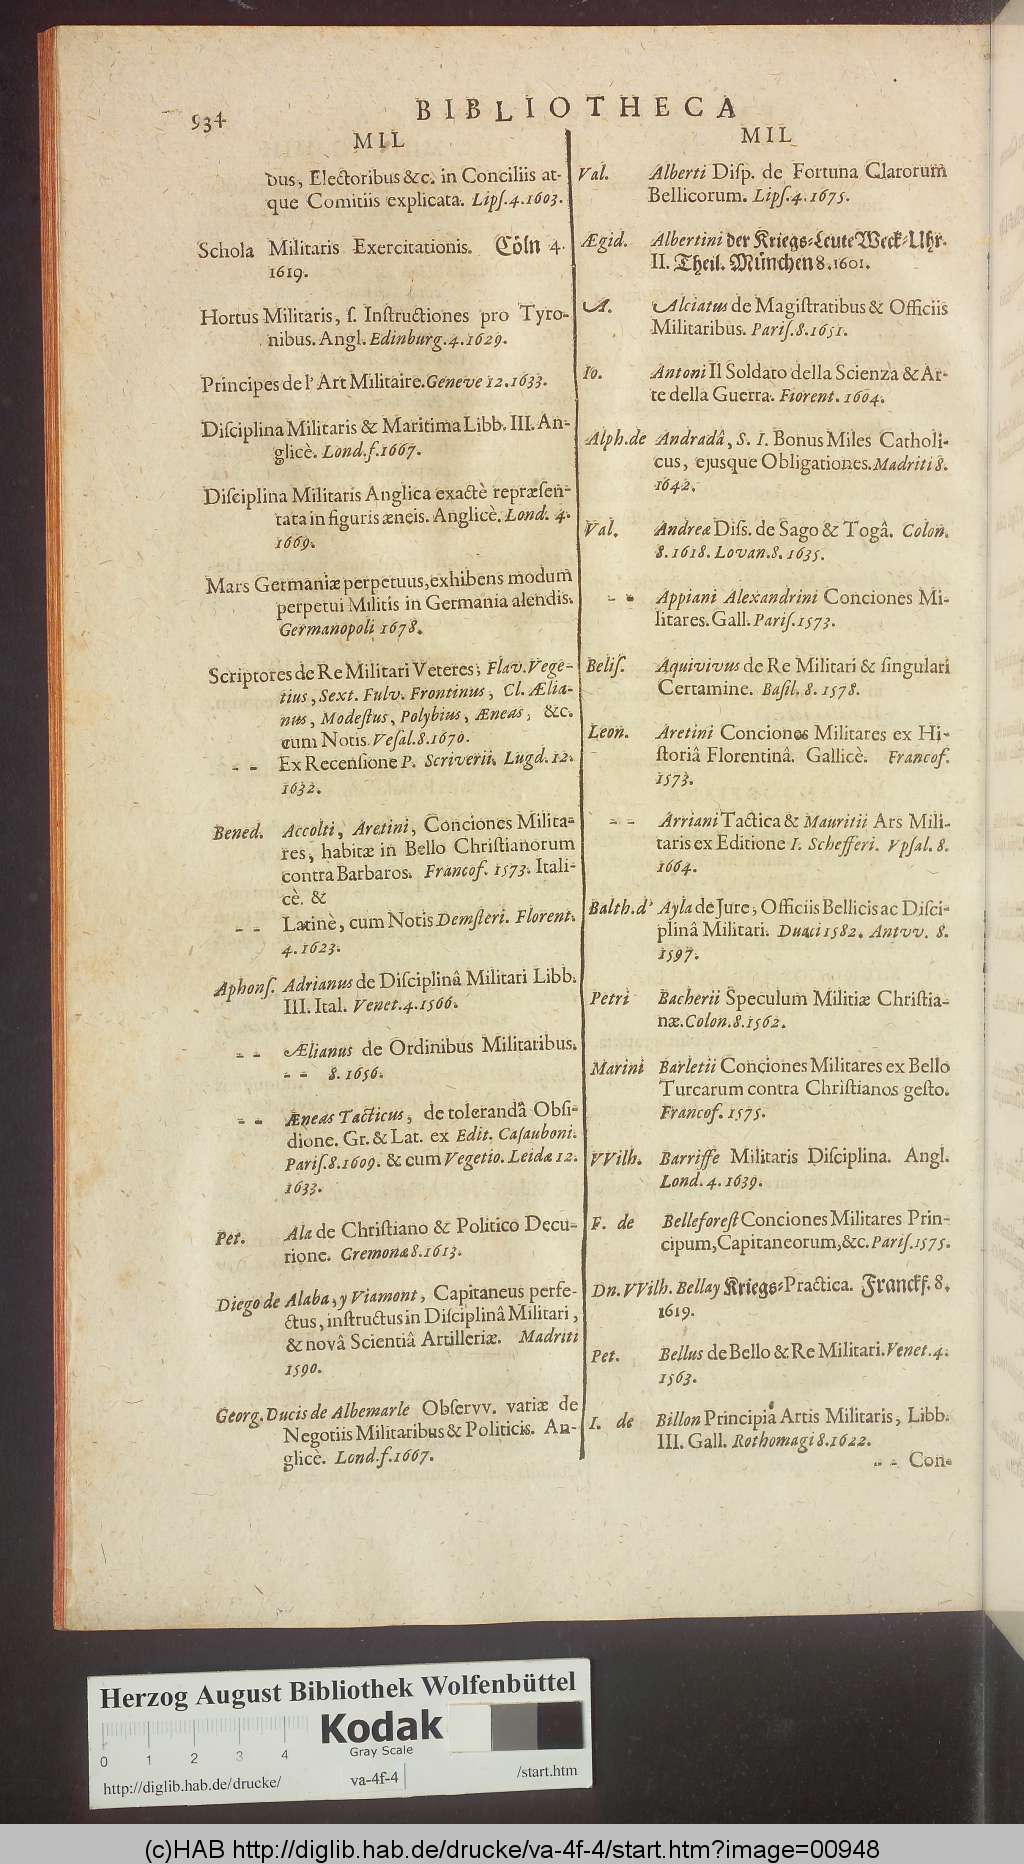 934
BIBLIOTHECA
MIL
bus, Electoribus &c. in Conciliis at-
que Comitiis explicata. Lipſ. 4. 1603.
Schola Militaris Exercitationis. Cöln 4.
1619.
Hortus Militaris, ſ. Inſtructiones pro Tyro-
nibus. Angl. Edinburg. 4. 1629.
Principes de l' Art Militaire. Geneve 12. 1633.
Diſciplina Militaris & Maritima Libb. III. An-
glicè. Lond. f. 1667.
Diſciplina Militaris Anglica exactè repræſen-
tata in figuris æneis. Anglicè. Lond. 4.
1669.
Mars Germaniæ perpetuus, exhibens modum
perpetui Militis in Germania alendis.
Germanopoli 1678.
Scriptores de Re Militari Veteres; Flav. Vege-
tius, Sext. Fulv. Frontinus, Cl. Ælia-
nus, Modeſtus, Polybius, Æneas, &c.
cum Notis. Veſal. 8. 1670.
- - Ex Recenſione P. Scriverii. Lugd. 12.
1632.
Bened. Accolti, Aretini, Conciones Milita-
res, habitæ in Bello Chriſtianorum
contra Barbaros. Francof. 1573. Itali-
cè. &
- - Latinè, cum Notis Demſteri. Florent.
4. 1623.
Aphonſ. Adrianus de Diſciplinâ Militari Libb.
III. Ital. Venet. 4. 1566.
- - Ælianus de Ordinibus Militaribus.
- - 8. 1656.
- - Æneas Tacticus, de tolerandâ Obſi-
dione. Gr. & Lat. ex Edit. Caſauboni.
Pariſ. 8. 1609. & cum Vegetio. Leidæ 12.
1633.
Pet. Ala de Chriſtiano & Politico Decu-
rione. Cremonæ 8. 1613.
Diego de Alaba, y Viamont, Capitaneus perfe-
ctus, inſtructus in Diſciplinâ Militari,
& novâ Scientiâ Artilleriæ. Madriti
1590.
Georg. Ducis de Albemarle Obſervv. variæ de
Negotiis Militaribus & Politicis. An-
glicè. Lond. f. 1667.
MIL
Val. Alberti Diſp. de Fortuna Clarorum
Bellicorum. Lipſ. 4. 1675.
Ægid. Albertini der Kriegs-Leute Weck-Uhr.
II. Theil. München 8. 1601.
A. Alciatus de Magiſtratibus & Officiis
Militaribus. Pariſ. 8. 1651.
Io. Antoni Il Soldato della Scienza & Ar-
te della Guerra. Fiorent. 1604.
Alph. de Andradâ, S. I. Bonus Miles Catholi-
cus, ejusque Obligationes. Madriti 8.
1642.
Val. Andreæ Diſſ. de Sago & Togâ. Colon.
8. 1618. Lovan. 8. 1635.
- - Appiani Alexandrini Conciones Mi-
litares. Gall. Pariſ. 1573.
Beliſ. Aquivivus de Re Militari & ſingulari
Certamine. Baſil. 8. 1578.
Leon. Aretini Conciones Militares ex Hi-
ſtoriâ Florentinâ. Gallicè. Francof.
1573.
- - Arriani Tactica & Mauritii Ars Mili-
taris ex Editione I. Schefferi. Vpſal. 8.
1664.
Balth. d' Ayla de Jure, Officiis Bellicis ac Diſci-
plinâ Militari. Duaci 1582. Antvv. 8.
1597.
Petri Bacherii Speculum Militiæ Chriſtia-
næ. Colon. 8. 1562.
Marini Barletii Conciones Militares ex Bello
Turcarum contra Chriſtianos geſto.
Francof. 1575.
VVilh. Barriffe Militaris Diſciplina. Angl.
Lond. 4. 1639.
F. de Belleforeſt Conciones Militares Prin-
cipum, Capitaneorum, &c. Pariſ. 1575.
Dn. VVilh. Bellay Kriegs-Practica. Franckf. 8.
1619.
Pet. Bellus de Bello & Re Militari. Venet. 4.
1563.
I. de Billon Principia Artis Militaris, Libb.
III. Gall. Rothomagi 8. 1622.
- - Con-
Herzog August Bibliothek Wolfenbüttel
Kodak
Gray Scale
0 1 2 3 4
http://diglib.hab.de/drucke/ va-4f-4 /start.htm
(c)HAB http://diglib.hab.de/drucke/va-4f-4/start.htm?image=00948